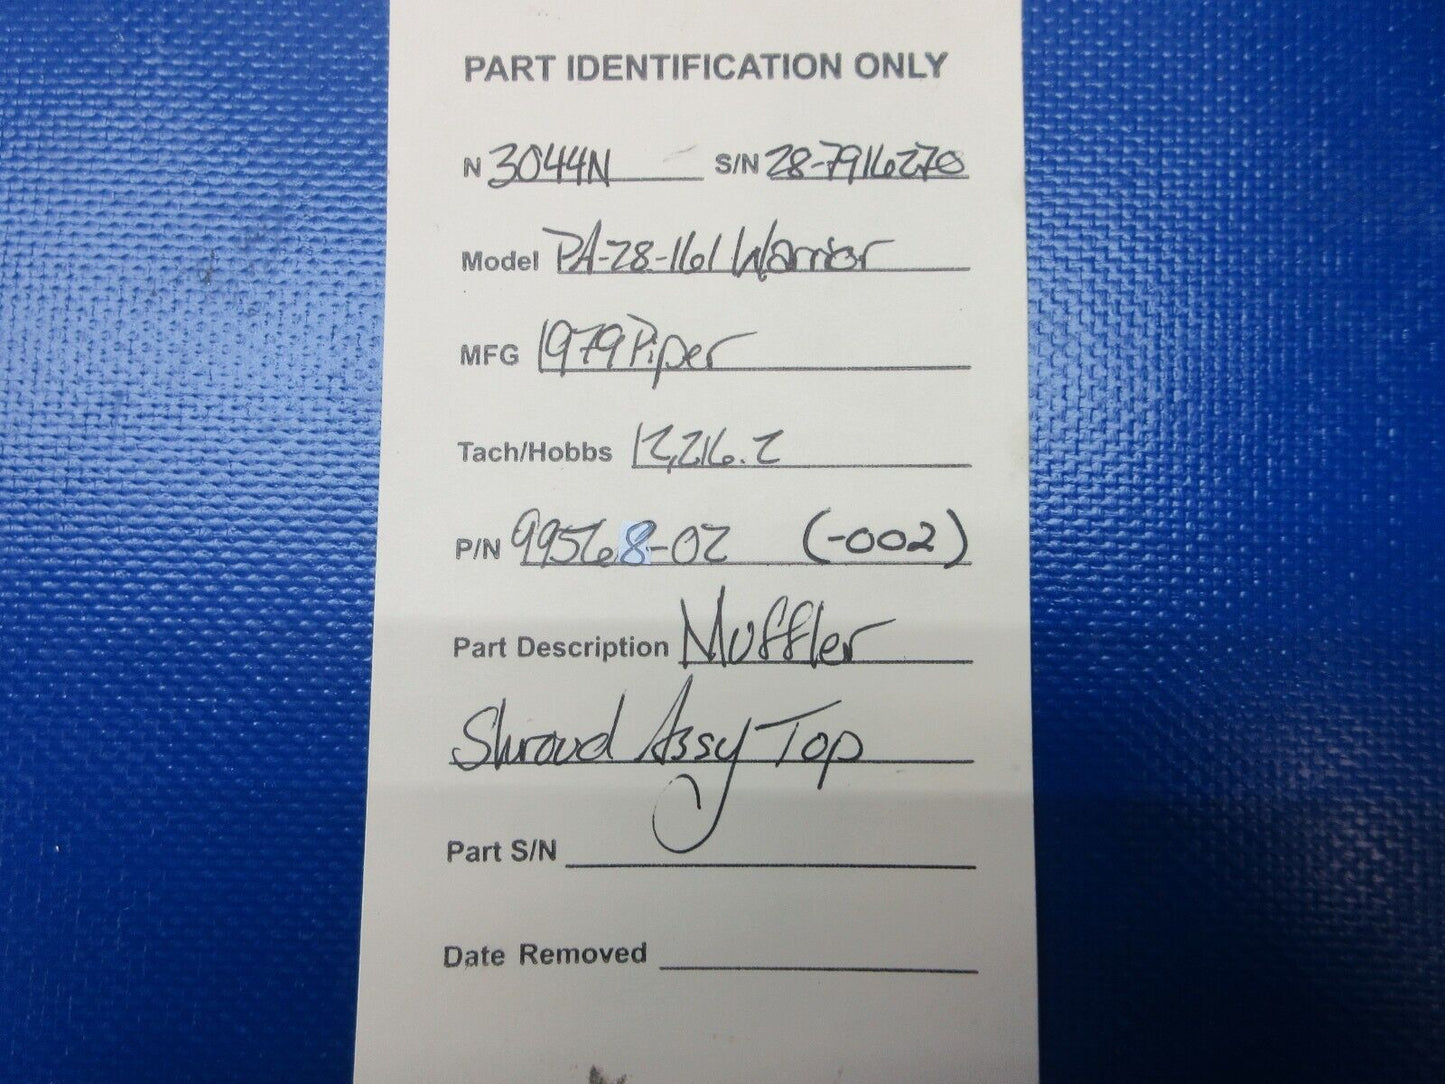 PART IDENTIFICATION ONLY
N 3044N S/N 28-7916270
Model PA-28-161 Warrior
MFG 1979 Piper
Tach/Hobbs 12,216.2
P/N 99568-02 (-002)
Part Description Muffler
Shroud Assy Top
Part S/N
Date Removed